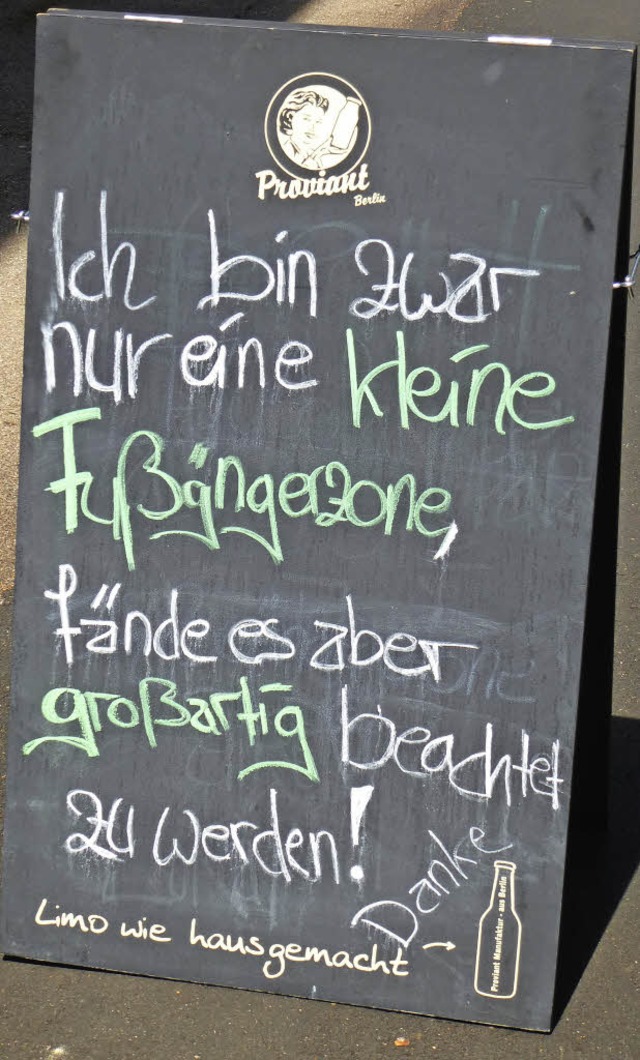 Proviant
Berlin
Ich bin zwar
nur eine kleine
Fußgängerzone,
fände es aber
großartig beachtet
zu werden!
Danke
Limo wie hausgemacht →
Proviant Manufaktur - aus Berlin